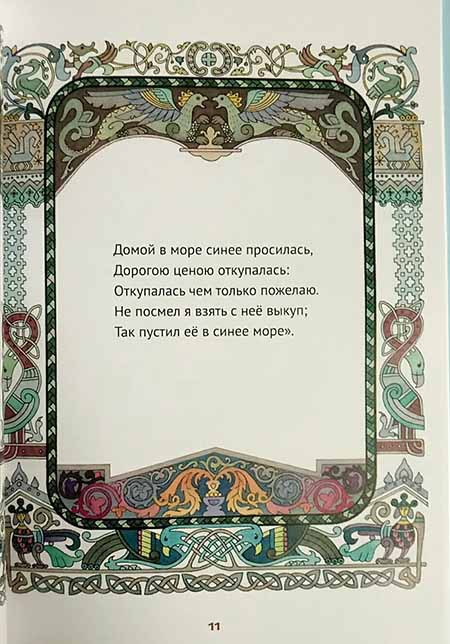 Домой в море синее просилась,
Дорогою ценою откупалась:
Откупалась чем только пожелаю.
Не посмел я взять с неё выкуп;
Так пустил её в синее море».
11